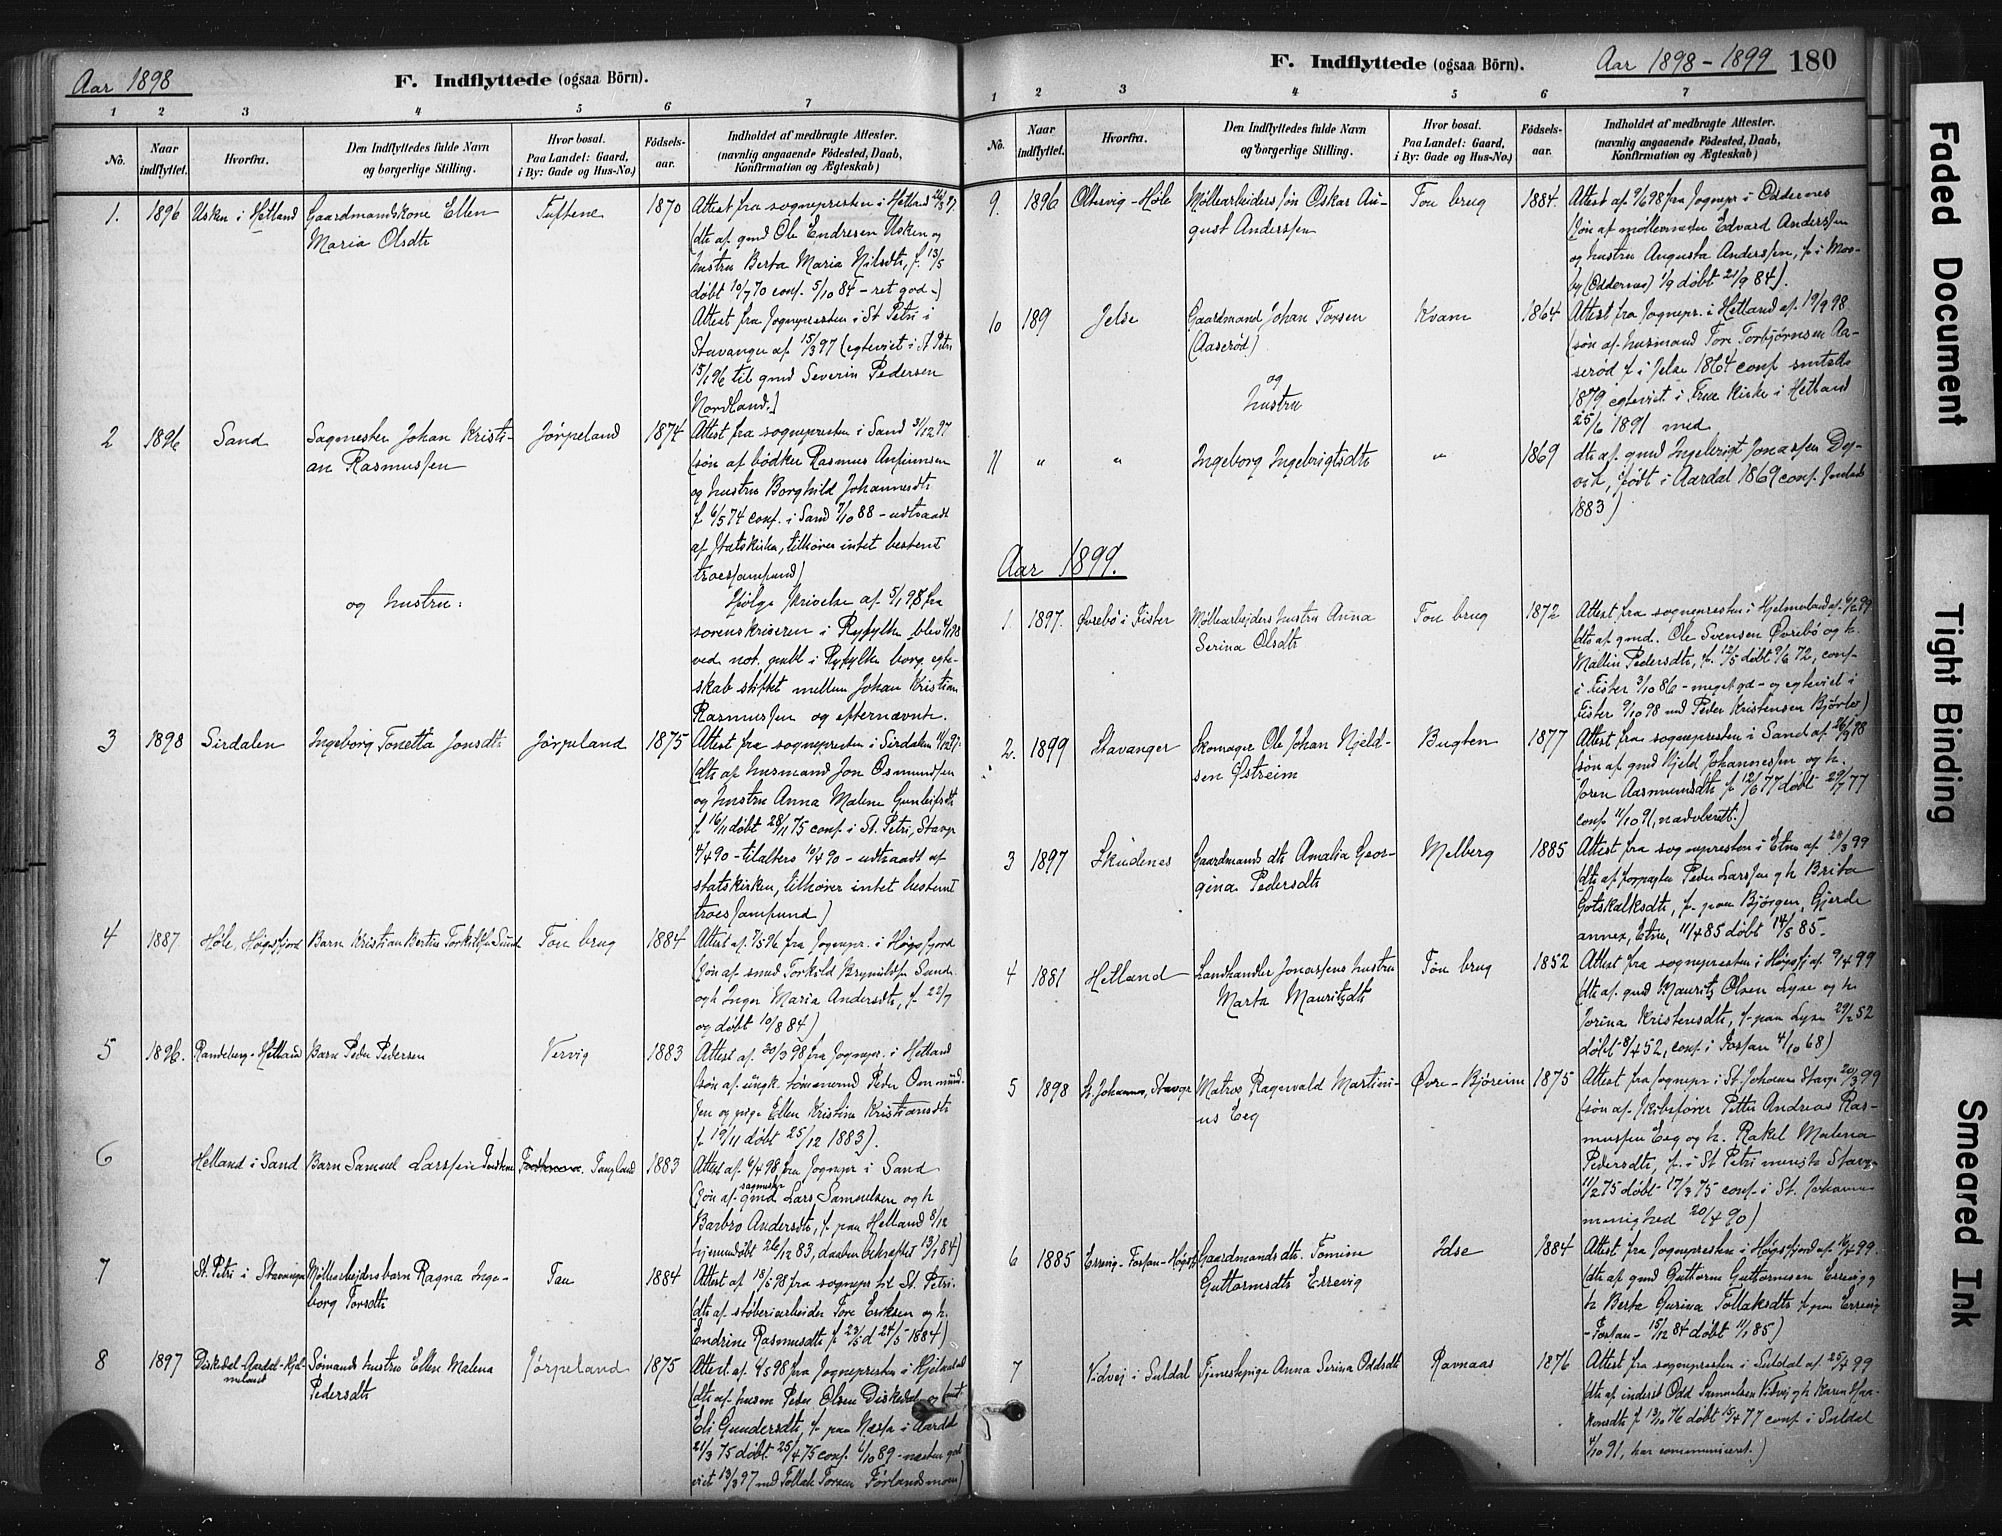 Aar 1898
F. Indflyttede (ogsaa Börn).
1 2 3 4 5 6 7
No.
Naar indflyttet.
Hvorfra.
Den Indflyttedes fulde Navn
og borgerlige Stilling.
Hvor bosat.
Paa Landet: Gaard,
i By: Gade og Hus-No.)
Födsels-
aar.
Indholdet af medbragte Attester.
(navnlig angaaende Födested, Daab,
Konfirmation og Ægteskab)
1. 1896 Usken i Hetland Gaardmandskone Ellen Tuftene 1870 Attest fra sognepresten i Hetland
Maria Olsdtr (dtr af gmd Ole Endresen Usken og
hustru Berta Maria Nilsdtr, f. 13/5
döbt 10/7 70 conf. 5/10 84 - ret god -)
Attest fra sognepresten i St Petri i
Stavanger af 15/3 97 (egteviet i St Petri
til gmd Severin Pedersen
Nordland.)
2 1896 Sand Sagmester Johan Kristi- Jørpeland 1874 Attest fra sognepresten i Sand 31/12 97
an Rasmussen (søn af bødker Rasmus
og hustru Borghild Johannesdtr
f 6/5 74 conf. i Sand 7/10 88 - udtraadt
af statskirken, tilhører intet bestemt
troessamfund)
og hustru: Ifølge skrivelse af 5/1 98 fra
sorenskriveren i Ryfylke blev 4/1 98
ved not. publ i Ryfylke borg. egte-
skab stiftet mellem Johan Kristian
Rasmussen og efternævnte.
3 1898 Sirdalen Ingeborg Tonetta Jonsdtr Jørpeland 1875 Attest fra sognepresten i Sirdalen
(dtr af husmand Jon Osmundsen
og hustru Anna Malene Gunleifsdtr
f 16/11 døbt 28/11 75 conf i St. Petri, Stavgr
4/4 90 - tilalters 10/4 90 - udtraadt af
statskirken, tilhører intet bestemt
troessamfund)
4 1887. Høle, Høgsfjord Barn Kristian Bertin Torkildsen Sund Tou brug 1884 Attest af fra sognepr. i Høgsfjord
(søn af Torkild Sund
og h Inger Maria Andersdtr, f. 22/7
og døbt 10/8 84)
5 1896. Randeberg - Hetland Barn Peder Pedersen Vervig 1883 Attest af 30/3 98 fra sognepr. i Hetland
(søn af ungk. tømmermd Peder Ommund-
sen og pige Ellen Kristine Kristiansdtr
f 19/11 døbt 25/12 1883).
6 Helland i Sand Barn Samuel Larssen Tangland 1883 Attest af 6/4 98 fra sognepr i Sand
(søn af gmd Lars Samuelsen og h
Barbro Andersdtr, f. paa Helland 8/12
hjemmedøbt 26/12 83, daaben bekræftet 13/1 84)
7 St. Petri i Stavanger Møllearbeidersbarn Ragna Inge- Tau 1884 Attest af 18/5 98 fra sognepr til St. Petri
borg Torsdtr (dtr af støberiarbeider Tore Eriksen og h.
Endrine Rasmusdtr f 23/5 d 24/5 1884)
8 1897 Diskedal - Aardal - Hjel- Sømands hustru Ellen Malena Jørpeland 1875 Attest af 6/5 98 fra sognepresten i Hjelmeland
meland Pedersdtr (dtr af husm Peder Olsen Diskedal og hust.
Eli Gundersdtr, f paa Næssa i Aardal
21/3 75 døbt 25/4 75 conf. 6/10 89 - næsten god
viet 13/3 97 med Tollak Torsen Førlandsmoen)
F. Indflyttede (ogsaa Börn).
Aar 1898 - 1899 180
1 2 3 4 5 6 7
No.
Naar indflyttet.
Hvorfra.
Den Indflyttedes fulde Navn
og borgerlige Stilling.
Hvor bosat.
Paa Landet: Gaard,
i By: Gade og Hus-No.)
Födsels-
aar.
Indholdet af medbragte Attester.
(navnlig angaaende Födested, Daab,
Konfirmation og Ægteskab)
9. 1896 Oltesvig - Høle Møllearbeiders søn Oskar Au- Tou brug 1884. Attest af 9/6 98 fra sognepr i Oddernes
gust Anderssen (søn af møllemester Edvard Anderssen
og hustru Augusta Anderssen, f i Mos-
by (Oddernes) 1/9 døbt 21/9 84).
10 189 Jelse Gaardmand Johan Torsen Kvam 1864 Attest fra sognepr. i Hetland af 19/9 98
(Aaserød) (søn af husmand Tore Torbjørnsen Aa-
og serød f i Jelse 1864 conf smtsds
hustru 1879 egteviet i Frue Kirke i Hetland
25/6 1891 med
11 " " Ingeborg Ingebrigtsdtr " 1869 dtr af gmd Ingebrigt Jonassen
født i Aardal 1869 conf.
1883)
Aar 1899.
1. 1897. Øvrebö i Fister Møllearbeiders hustru Anna Tou brug 1872 Attest fra sognepresten i Hjelmeland af 6/2 99
Serina Olsdtr (dtr af gmd. Ole Svensen Øvrebö og h.
Mallin Pedersdtr, f. 12/5 døbt 9/6 72, conf.
i Fister 3/10 86 - meget gd - og egteviet i
Fister 9/10 98 med Peder Kristensen)
2. 1899 Stavanger Skomager Ole Johan Kjeld- Bugten 1877 Attest fra sognepresten i Sand af 26/9 98
sen Østreim (søn af gmd Kjeld Johannessen og h.
Joren Aasmundsdtr f 12/6 77 døbt 29/7 77
conf 11/10 91, nadverberett.)
3 1897 Skudenes Gaardmands dtr Amalia Geor- Melberg 1885 Attest fra sognepresten i Etne af 28/3 99
gina Pedersdtr (dtr af forpagter Peder Larssen og h Brita
Gotskalksdtr, f. paa Bjørgen, Gjerde
annex, Etne, 11/4 85 døbt 14/5 85.
4 1881 Hetland Landhandler Jonassens hustru Tou brug 1852 Attest fra sognepresten i Høgsfj af 9/4 99
Marta Mauritzdtr (dtr af gmd Mauritz Olsen Lyse og h.
Jorina Kristensdtr, f paa Lyse 29/2 52
døbt 8/4 52, conf i Fossan 4/10 68)
5 1898 St. Johannes, Stavgr Matros Ragnvald Martini- Øvre - Bjøreim 1875 Attest fra sognepr i St. Johannes Stavgr 20/3 99
us Eeg (søn af skibsfører Petter Andreas Ras-
mussen Eeg og h. Rakel Malena
Pedersdtr, f. i St Petri menigh Stavgr
11/2 75 døbt 17/3 75 conf i St. Johannes
menighed 20/4 90)
6 1885 Errevig - Fossan - Høgsfj Gaardmandsdtr. Tomine Idse 1884 Attest fra sognepresten i Høgsfjord af 16/4 99.
Guttormsdtr Errevig (dtr af gmd Guttorm Guttormsen Errevig og
h Berta Gurina Tollaksdtr f paa Errevig
- Fossan - 15/12 84 døbt 11/1 85)
7 Vidvej i Suldal Tjenestepige Anna Serina Oddsdtr Ravnaas 1876 Attest fra sognepresten i Suldal af 25/4 99
(dtr af inderst Odd Samuelsen Vidvej og h Karen Haa-
konsdtr f 13/10 76 døbt 15/4 77 conf i Suldal
4/10 91, har communiceret.)
Faded Document
Tight Binding
Smeared Ink